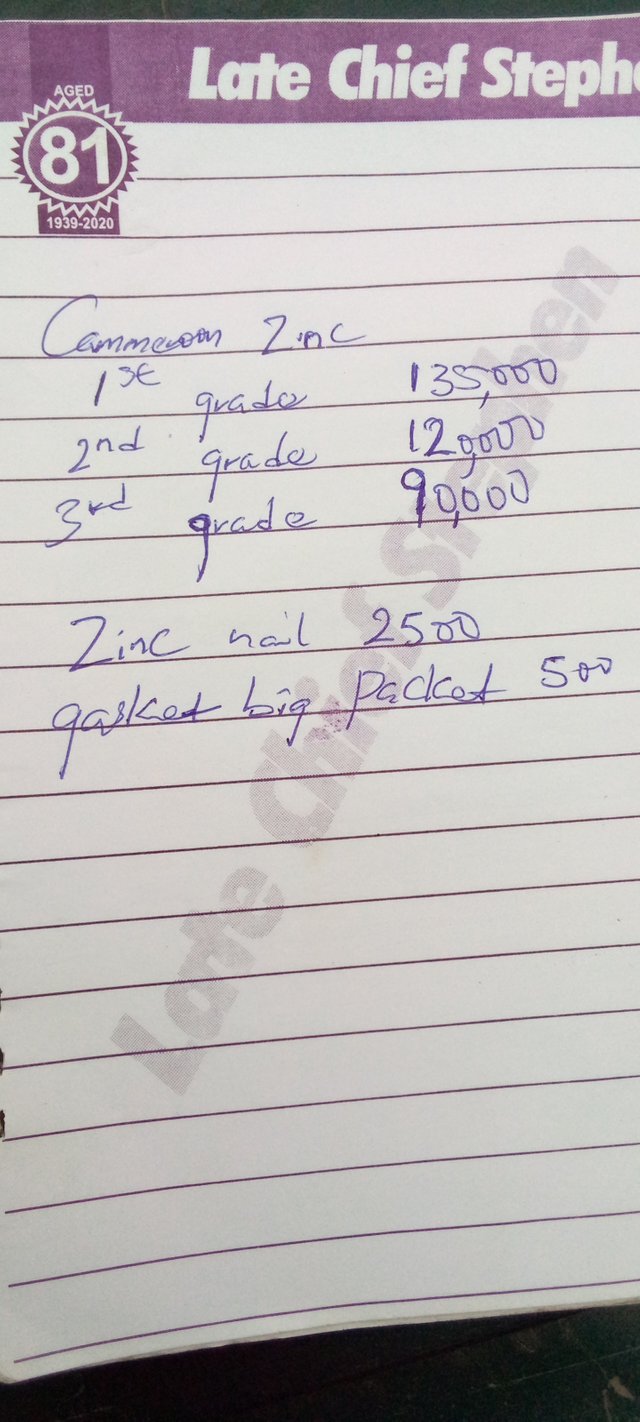 AGED
81
1939-2020
Late Chief Stephe
Cammeroon Zinc
1st grade 135,000
2nd grade 120,000
3rd grade 90,000
Zinc nail 2500
gasket big packet 500
Late Chief Stephen